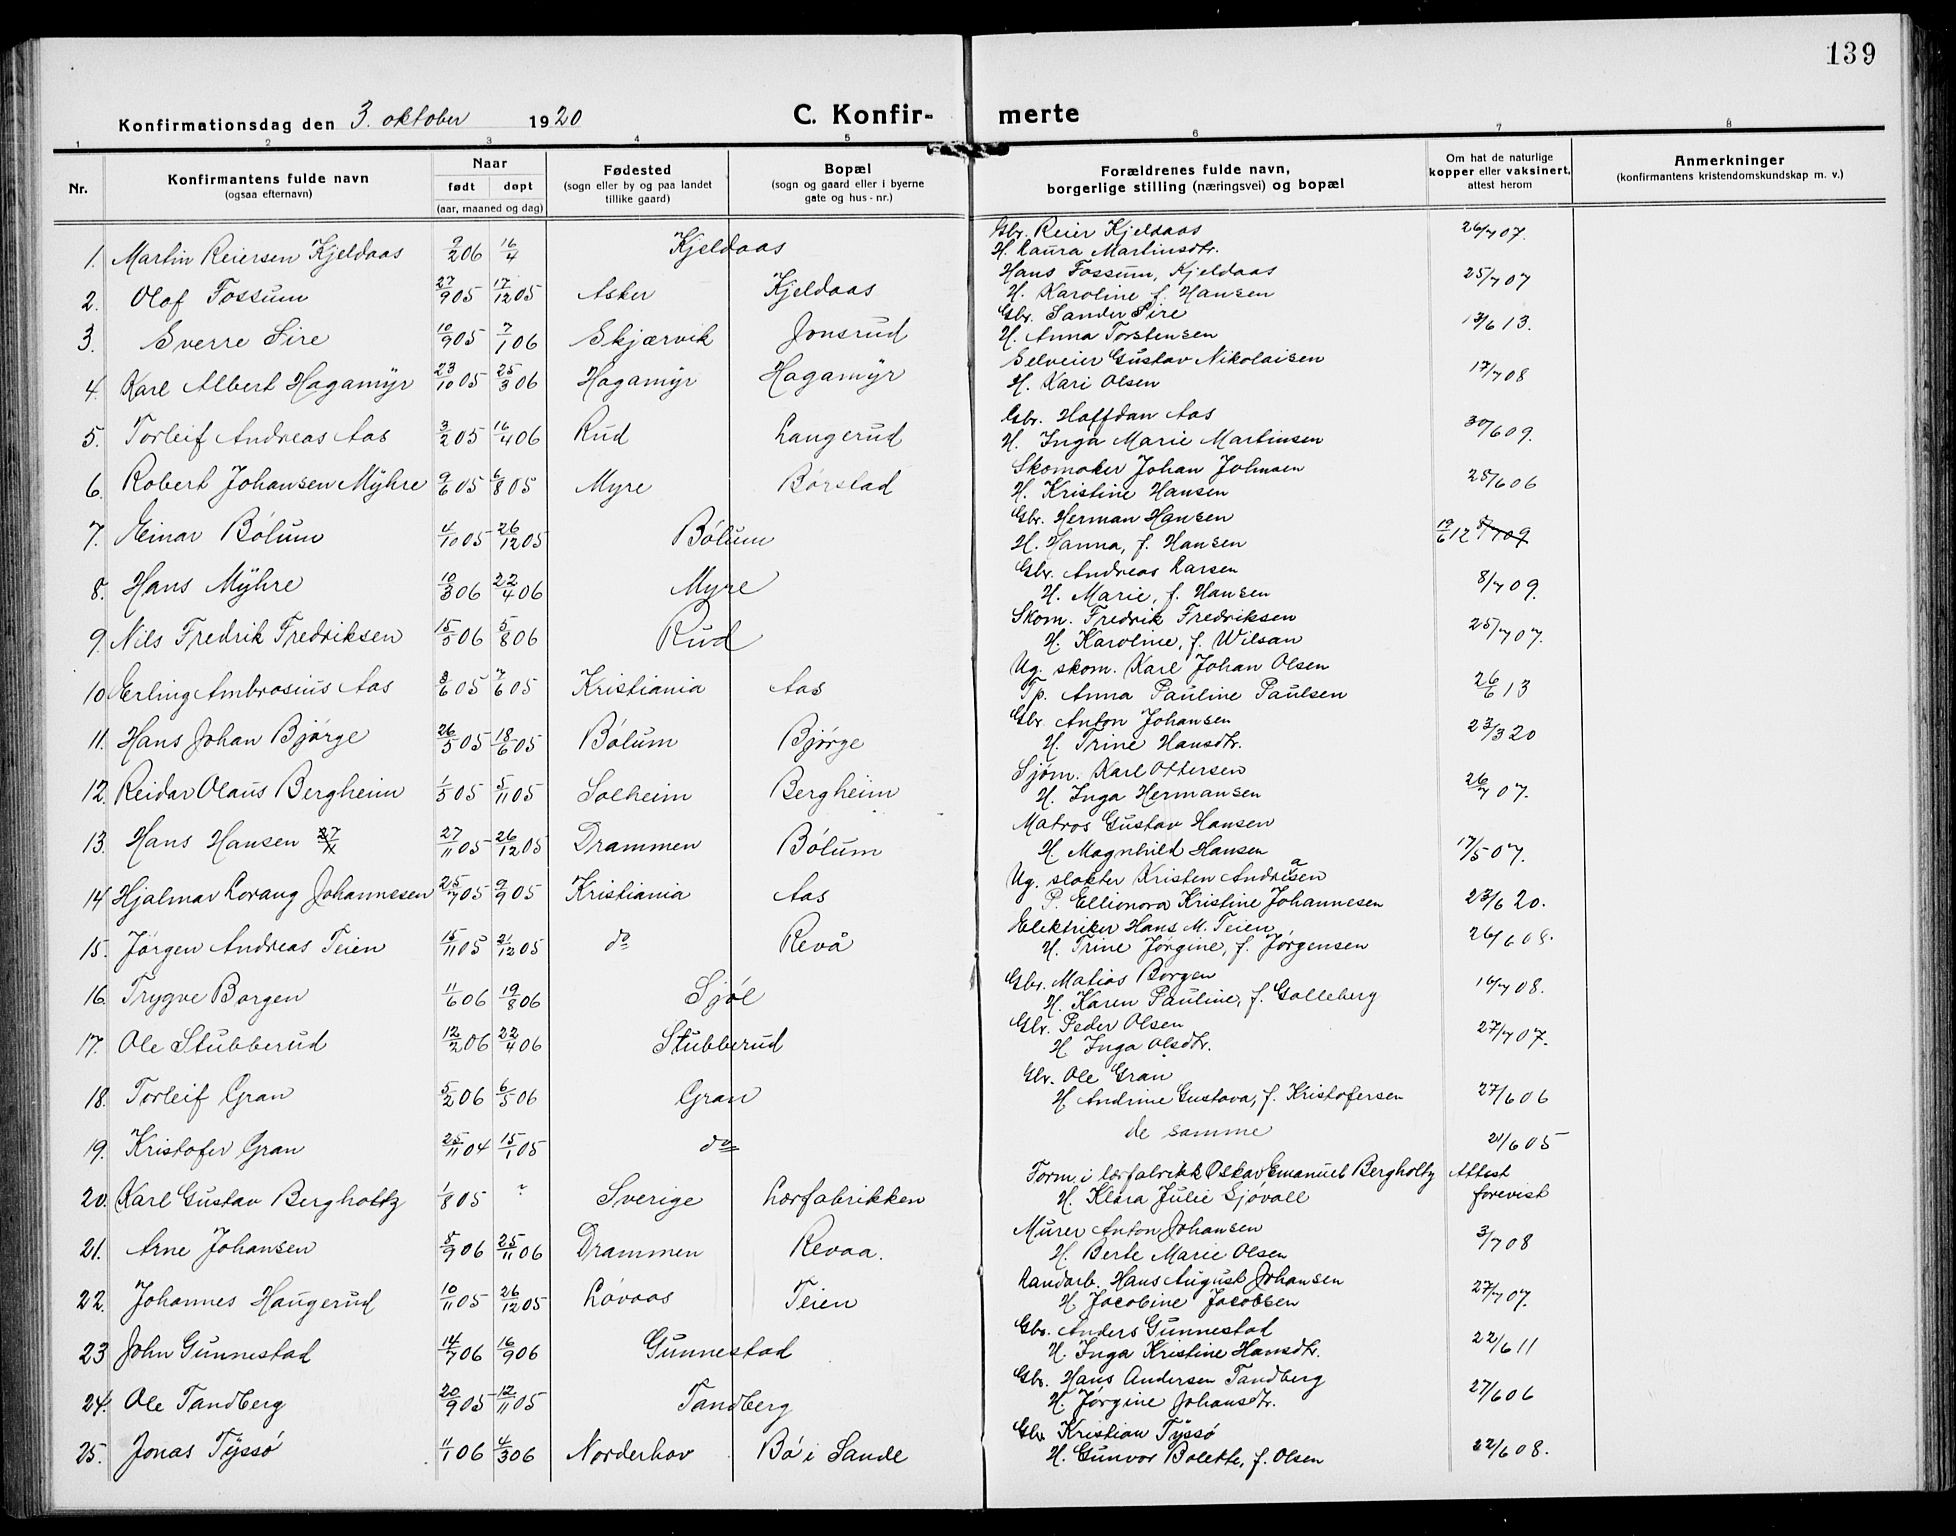 139
Konfirmationsdag den 3. oktober 1920 C. Konfir- merte
1 2 3 4 5 6 7 8
Nr. Konfirmantens fulde navn (ogsaa efternavn) Naar født døpt (aar, maaned og dag) Fødested (sogn eller by og paa landet tillike gaard) Bopæl (sogn og gaard eller i byerne gate og hus-nr.) Forældrenes fulde navn, borgerlige stilling (næringsvei) og bopæl Om hat de naturlige kopper eller vaksinert, attest herom Anmerkninger (konfirmantens kristendomskundskap m. v.)
1. Martin Reiersen Kjeldaas 9/2 06 16/4 Kjeldaas Gbr. Reier Kjeldaas 26/7 07.
H. Laura Martinsdtr.
2. Olof Fossum 27/9 05 17/12 05 Asker Kjeldaas Hans Fossum, Kjeldaas 25/7 07
H. Karoline f. Hansen
3. Sverre Sire 10/9 05 7/1 06 Skjærvik Jonsrud Gbr. Sander Sire 13/6 13.
H. Anna Torstensen
4. Karl Albert Hagamyr 23/10 05 25/3 06 Hagamyr Hagamyr Selveier Gustav Nikolaisen 17/7 08
H. Kari Olsen
5. Torleif Andreas Aas 3/2 05 16/4 06 Rud Langerud Gbr. Halfdan Aas 30/6 09.
H. Inga Marie Martinsen
6. Robert Johansen Myhre 9/6 05 6/8 05 Myre Børstad Skomaker Johan Johnsen 25/6 06
H. Kristine Hansen
7. Einar Bólum 4/10 05 26/12 05 Bólum Gbr. Herman Hansen 19/6 12
H. Hanna, f. Hansen
8. Hans Myhre 10/3 06 22/4 06 Myre Gbr. Andreas Larsen 8/7 09.
H. Marie, f. Hansen
9. Nils Fredrik Fredriksen 15/5 06 5/8 06 Rud Skom. Fredrik Fredriksen 25/7 07.
H. Karoline, f. Wilsan
10. Erling Ambrosius Aas 3/6 05 7/6 05 Kristiania Aas Ug. skom. Karl Johan Olsen 26/6 13
Tp. Anna Pauline Paulsen
11. Hans Johan Bjørge 26/5 05 18/6 05 Bólum Bjørge Gbr. Anton Johansen 23/3 20
H. Trine Hansdtr.
12. Reidar Olaus Bergheim 1/5 05 5/11 05 Solheim Bergheim Sjøm. Karl Ottersen 26/7 07.
H. Inga Hermansen
13. Hans Hansen 27/11 05 26/12 05 Drammen Bólum Matros Gustav Hansen 17/5 07.
H. Magnhild Hansen
14 Hjalmar Lorang Johannesen 25/7 05 9/9 05 Kristiania Aas Ug. slakter Kristen Andreasen 23/6 20.
P. Ellionora Kristine Johannesen
15. Jørgen Andreas Teien 15/11 05 21/12 05 do Revå Elektriker Hans M. Teien 26/6 08.
H. Trine Jørgine, f. Jørgensen
16. Trygve Borgen 11/6 06 19/8 06 Sjøl Gbr. Matias Borgen 16/7 08.
H. Karen Pauline, f. Galleberg
17. Ole Stubberud 12/2 06 22/4 06 Stubberud Gbr. Peder Olsen 27/7 07.
H. Inga Olsdtr.
18. Torleif Gran 5/2 06 6/5 06 Gran Gbr. Ole Gran 27/6 06
H Andrine Gustava, f. Kristofersen
19. Kristofer Gran 25/11 04 15/1 05 do de samme 21/6 05
20. Karl Gustav Bergholtz 1/8 05 ? Sverige Lærfabrikken Form. i lærfabrikk Oskar Emanuel Bergholtz Attest
H. Klara Julie Sjøvall forevist
21. Arne Johansen 5/9 06 25/11 06 Drammen Revaa. Murer Anton Johansen 3/7 08
H. Berte Marie Olsen
22. Johannes Haugerud 10/11 05 26/12 05 Lóvaas Teien Landarb. Hans August Johansen 27/7 07.
H. Jacobine Jacobsen
23 John Gunnestad 14/7 06 16/9 06 Gunnestad Gbr. Anders Gunnestad 22/6 11
H. Inga Kristine Hansdtr.
24. Ole Tandberg 20/9 05 12/11 05 Tandberg Gbr. Hans Andersen Tandberg 27/6 06
H. Jørgine Johansdtr.
25. Jonas Tyssó 11/1 06 4/3 06 Norderhov Bó i Sande Gbr Kristian Tyssó 22/6 08.
H. Gunvor Bolette, f. Olsen